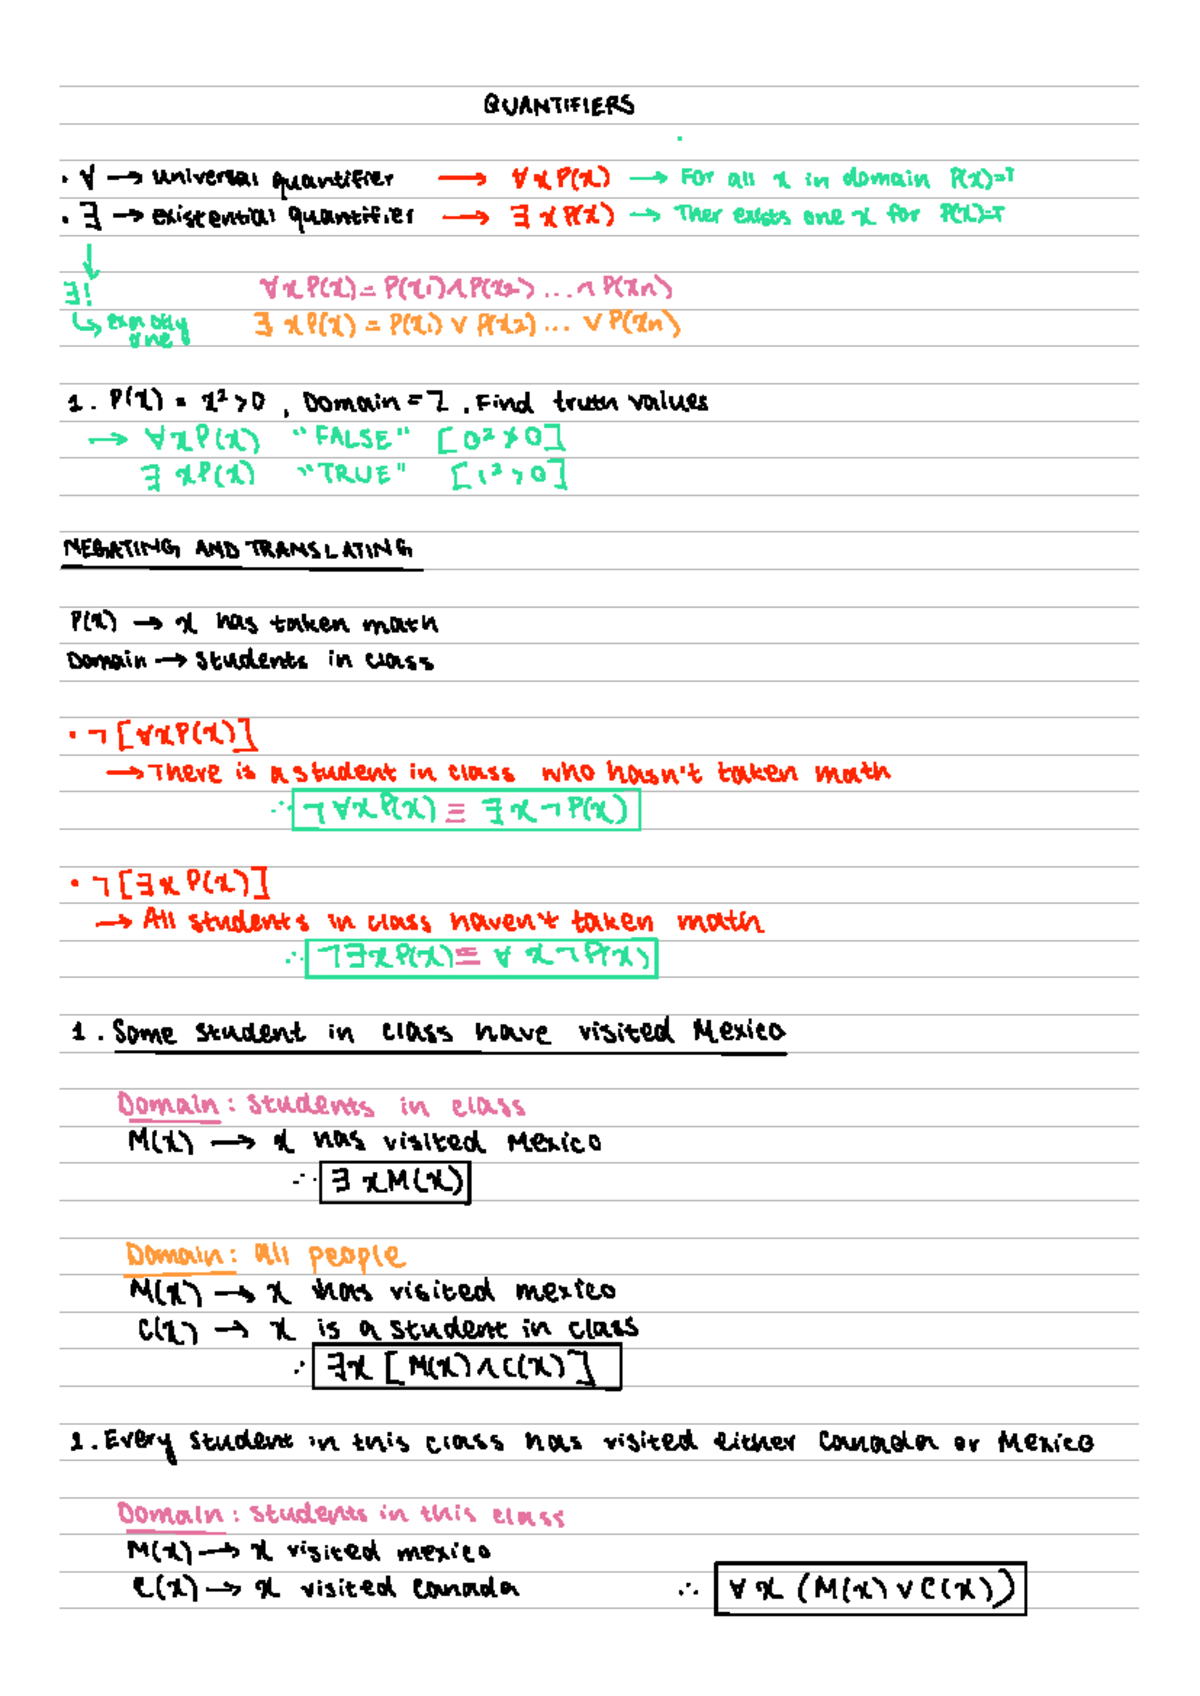 QUANTIFIERS
· ∀ → universal quantifier → ∀x P(x) → For all x in domain P(x)=T
· ∃ → existential quantifier → ∃x P(x) → Ther exists one x for P(x)=T
↓
∃!
↳ exactly one
∀x P(x) = P(x1) ∧ P(x2) ... ∧ P(xn)
∃ x P(x) = P(x1) ∨ P(x2) ... ∨ P(xn)
1. P(x) = x² > 0 , Domain = Z . Find truth values
→ ∀x P(x) "FALSE" [0² ≯ 0]
∃ x P(x) "TRUE" [1² > 0]
NEGATING AND TRANSLATING
P(x) → x has taken math
Domain → students in class
· ¬ [∀x P(x)]
→ There is a student in class who hasn't taken math
∴ ¬ ∀x P(x) ≡ ∃ x ¬ P(x)
· ¬ [∃x P(x)]
→ All students in class haven't taken math
∴ ¬∃x P(x) ≡ ∀ x ¬ P(x)
1. Some student in class have visited Mexico
Domain : students in class
M(x) → x has visited Mexico
∴ ∃ x M(x)
Domain : all people
M(x) → x has visited mexico
C(x) → x is a student in class
∴ ∃x [M(x) ∧ C(x)]
2. Every student in this class has visited either Canada or Mexico
Domain : students in this class
M(x) → x visited mexico
C(x) → x visited canada ∴ ∀ x (M(x) ∨ C(x))